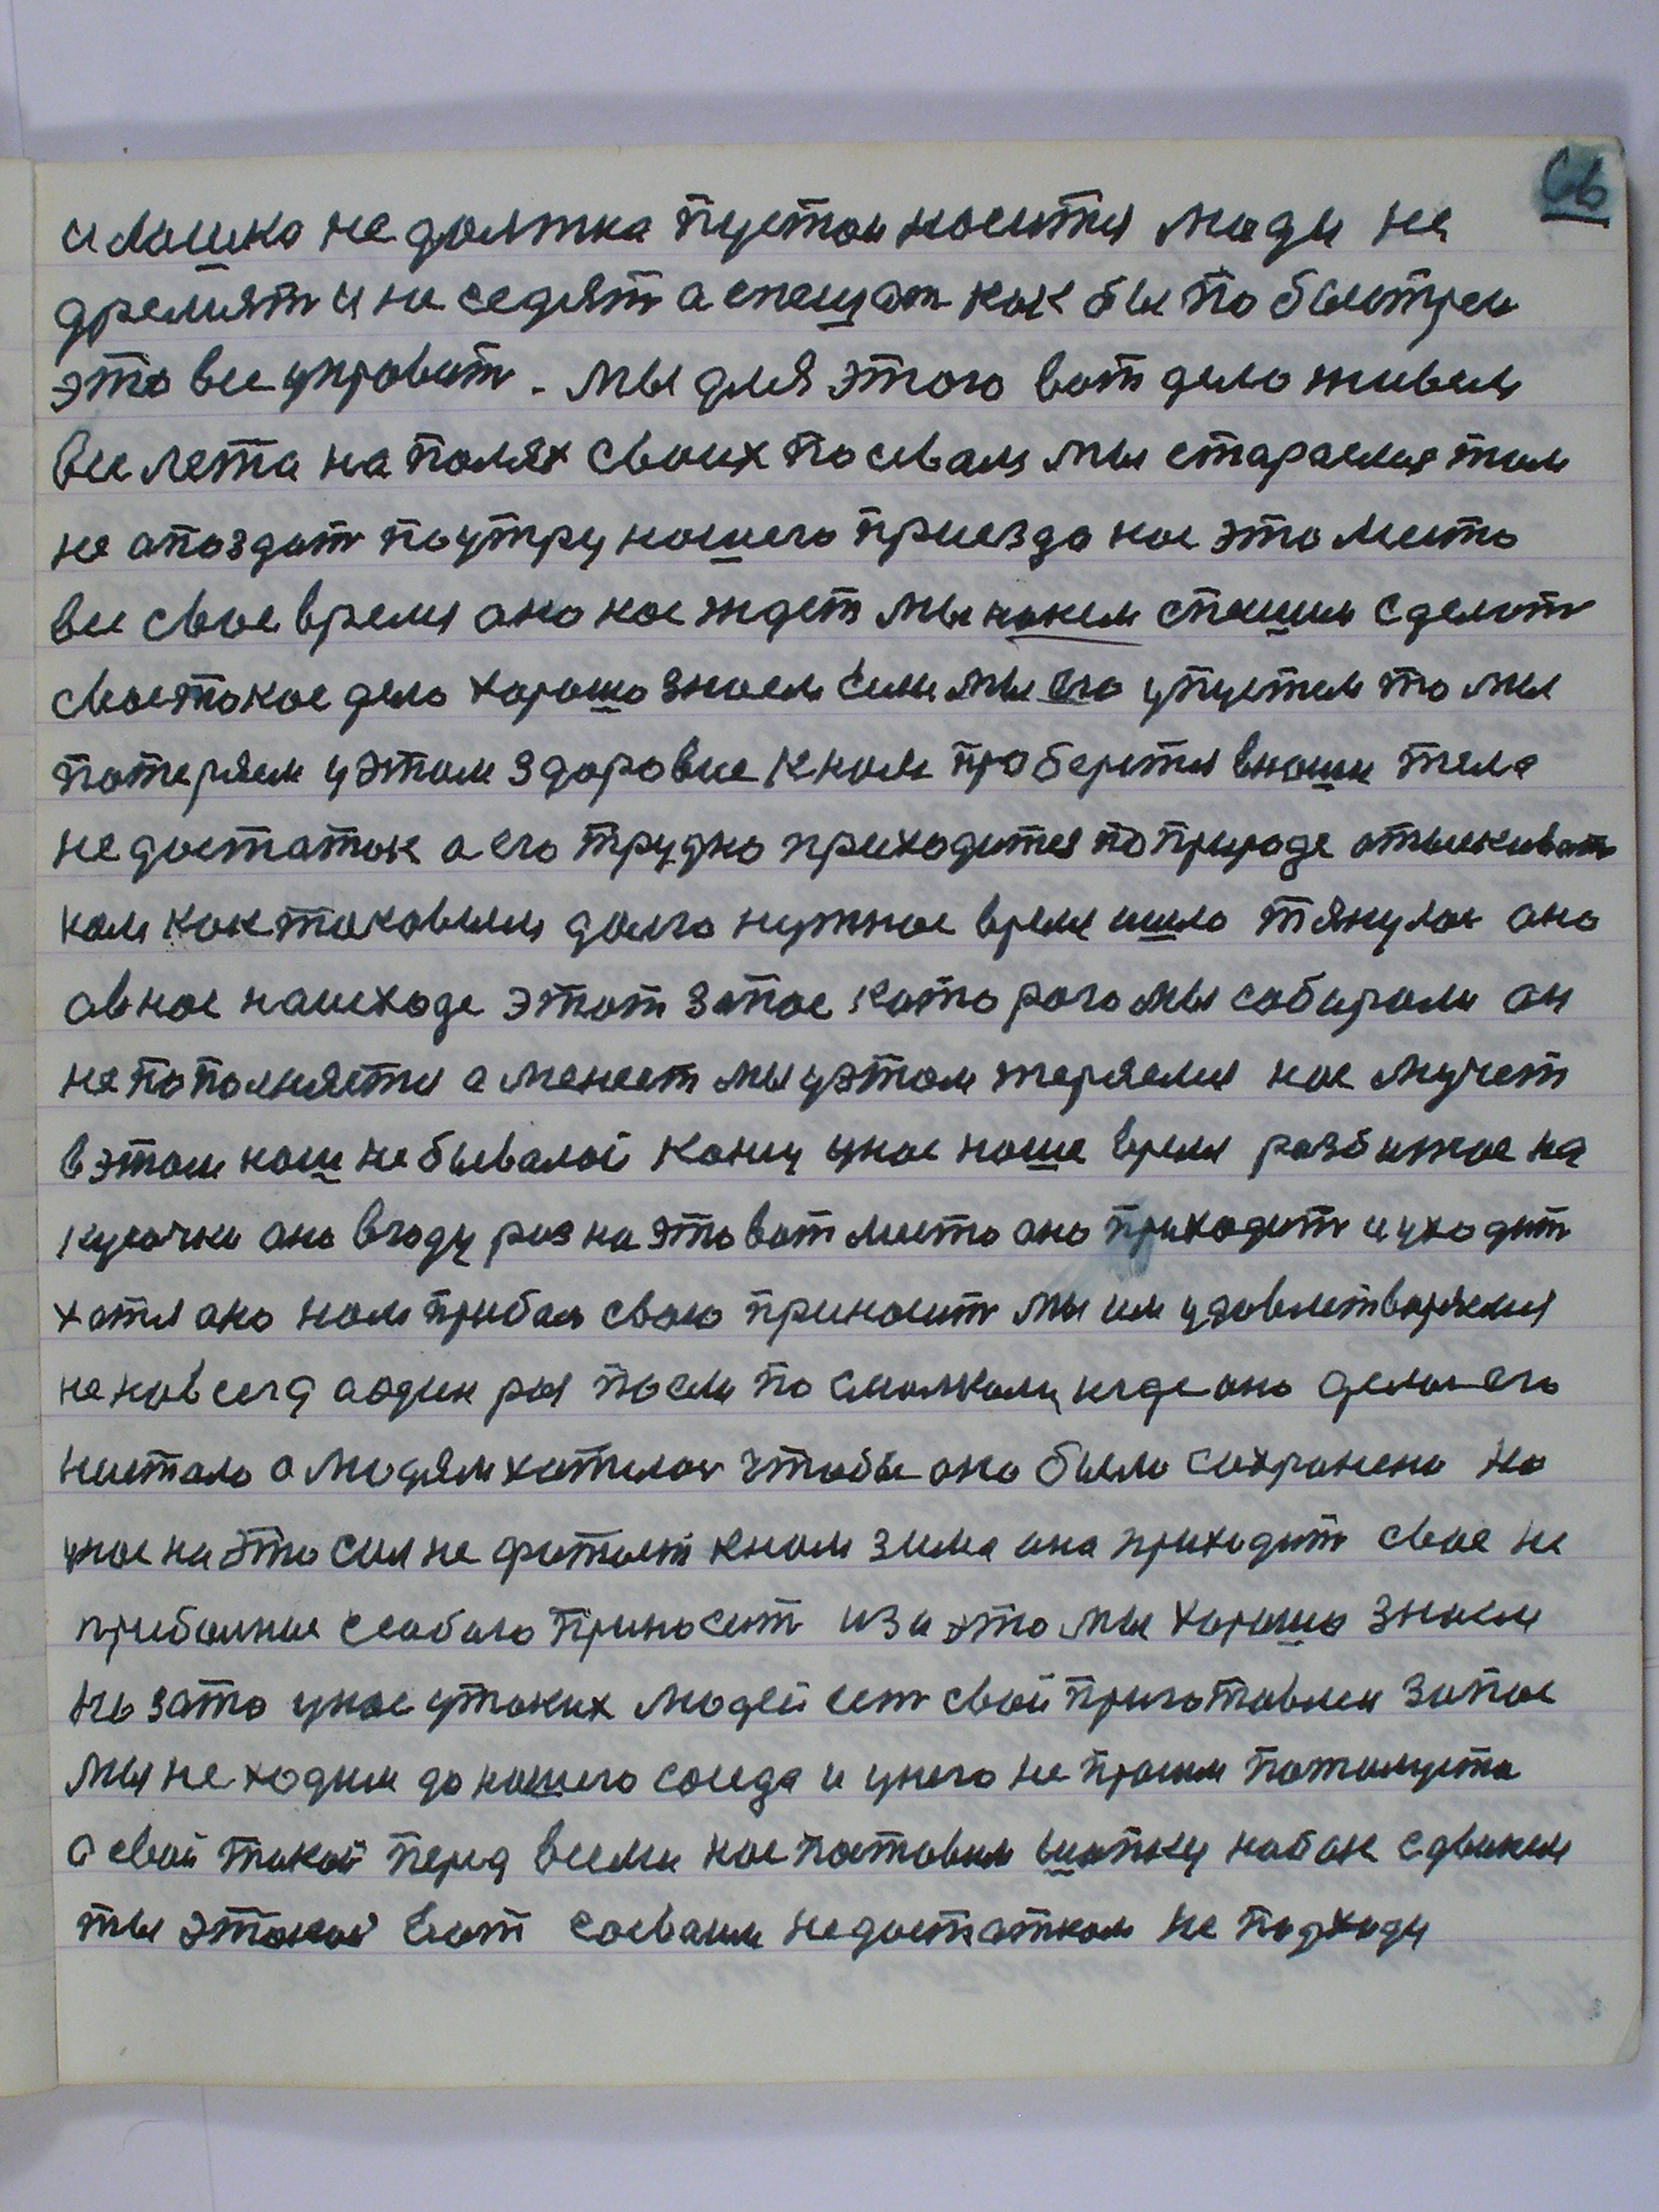 и лошка не должна пустои носится люди не
дремят и не седят а спешат как бы по быстреи
это все управит. мы для этого вот дела живем
все лета на полях своих посевам мы стараемся там
не апоздат поутру нашего приезда нас это место
все свое время ано нас ждет мы на нем спешим сделат
свое такое дело хорошо знаем если мы его упустим то мы
потеряем у этом здоровие к нам проберется в наши тела
недостаток а его трудно приходится по природе отыскиват
нам как таковым долго нужное время шло тянулос ано
а в нас на исходе этот запас каторого мы собирали он
не пополняется а менеет мы у этом теряемся нас мучет
в этом наш небывалой конец у нас наше время разбитое на
кусочки ано в году раз на это вот место ано приходит и уходит
хотя ано нам прибол свою приносит мы им удовлетворяемся
не навсегда а один раз поели посмолкали, и где ано делос его
нистало а людям хателос чтобы ано было сохранено но
у нас на это сил не фатает к нам зима ана приходит свое не
приболное с собою приносит из и это мы хорошо знаем
но зато у нас у таких людей ест свой приготовлен запас
мы не ходим до нашего соседа и у него не просим потомушто
а свой такой перед всеми нас поставим шапку набок сдвинем
ты этакой вот со своим недостатком не подходи